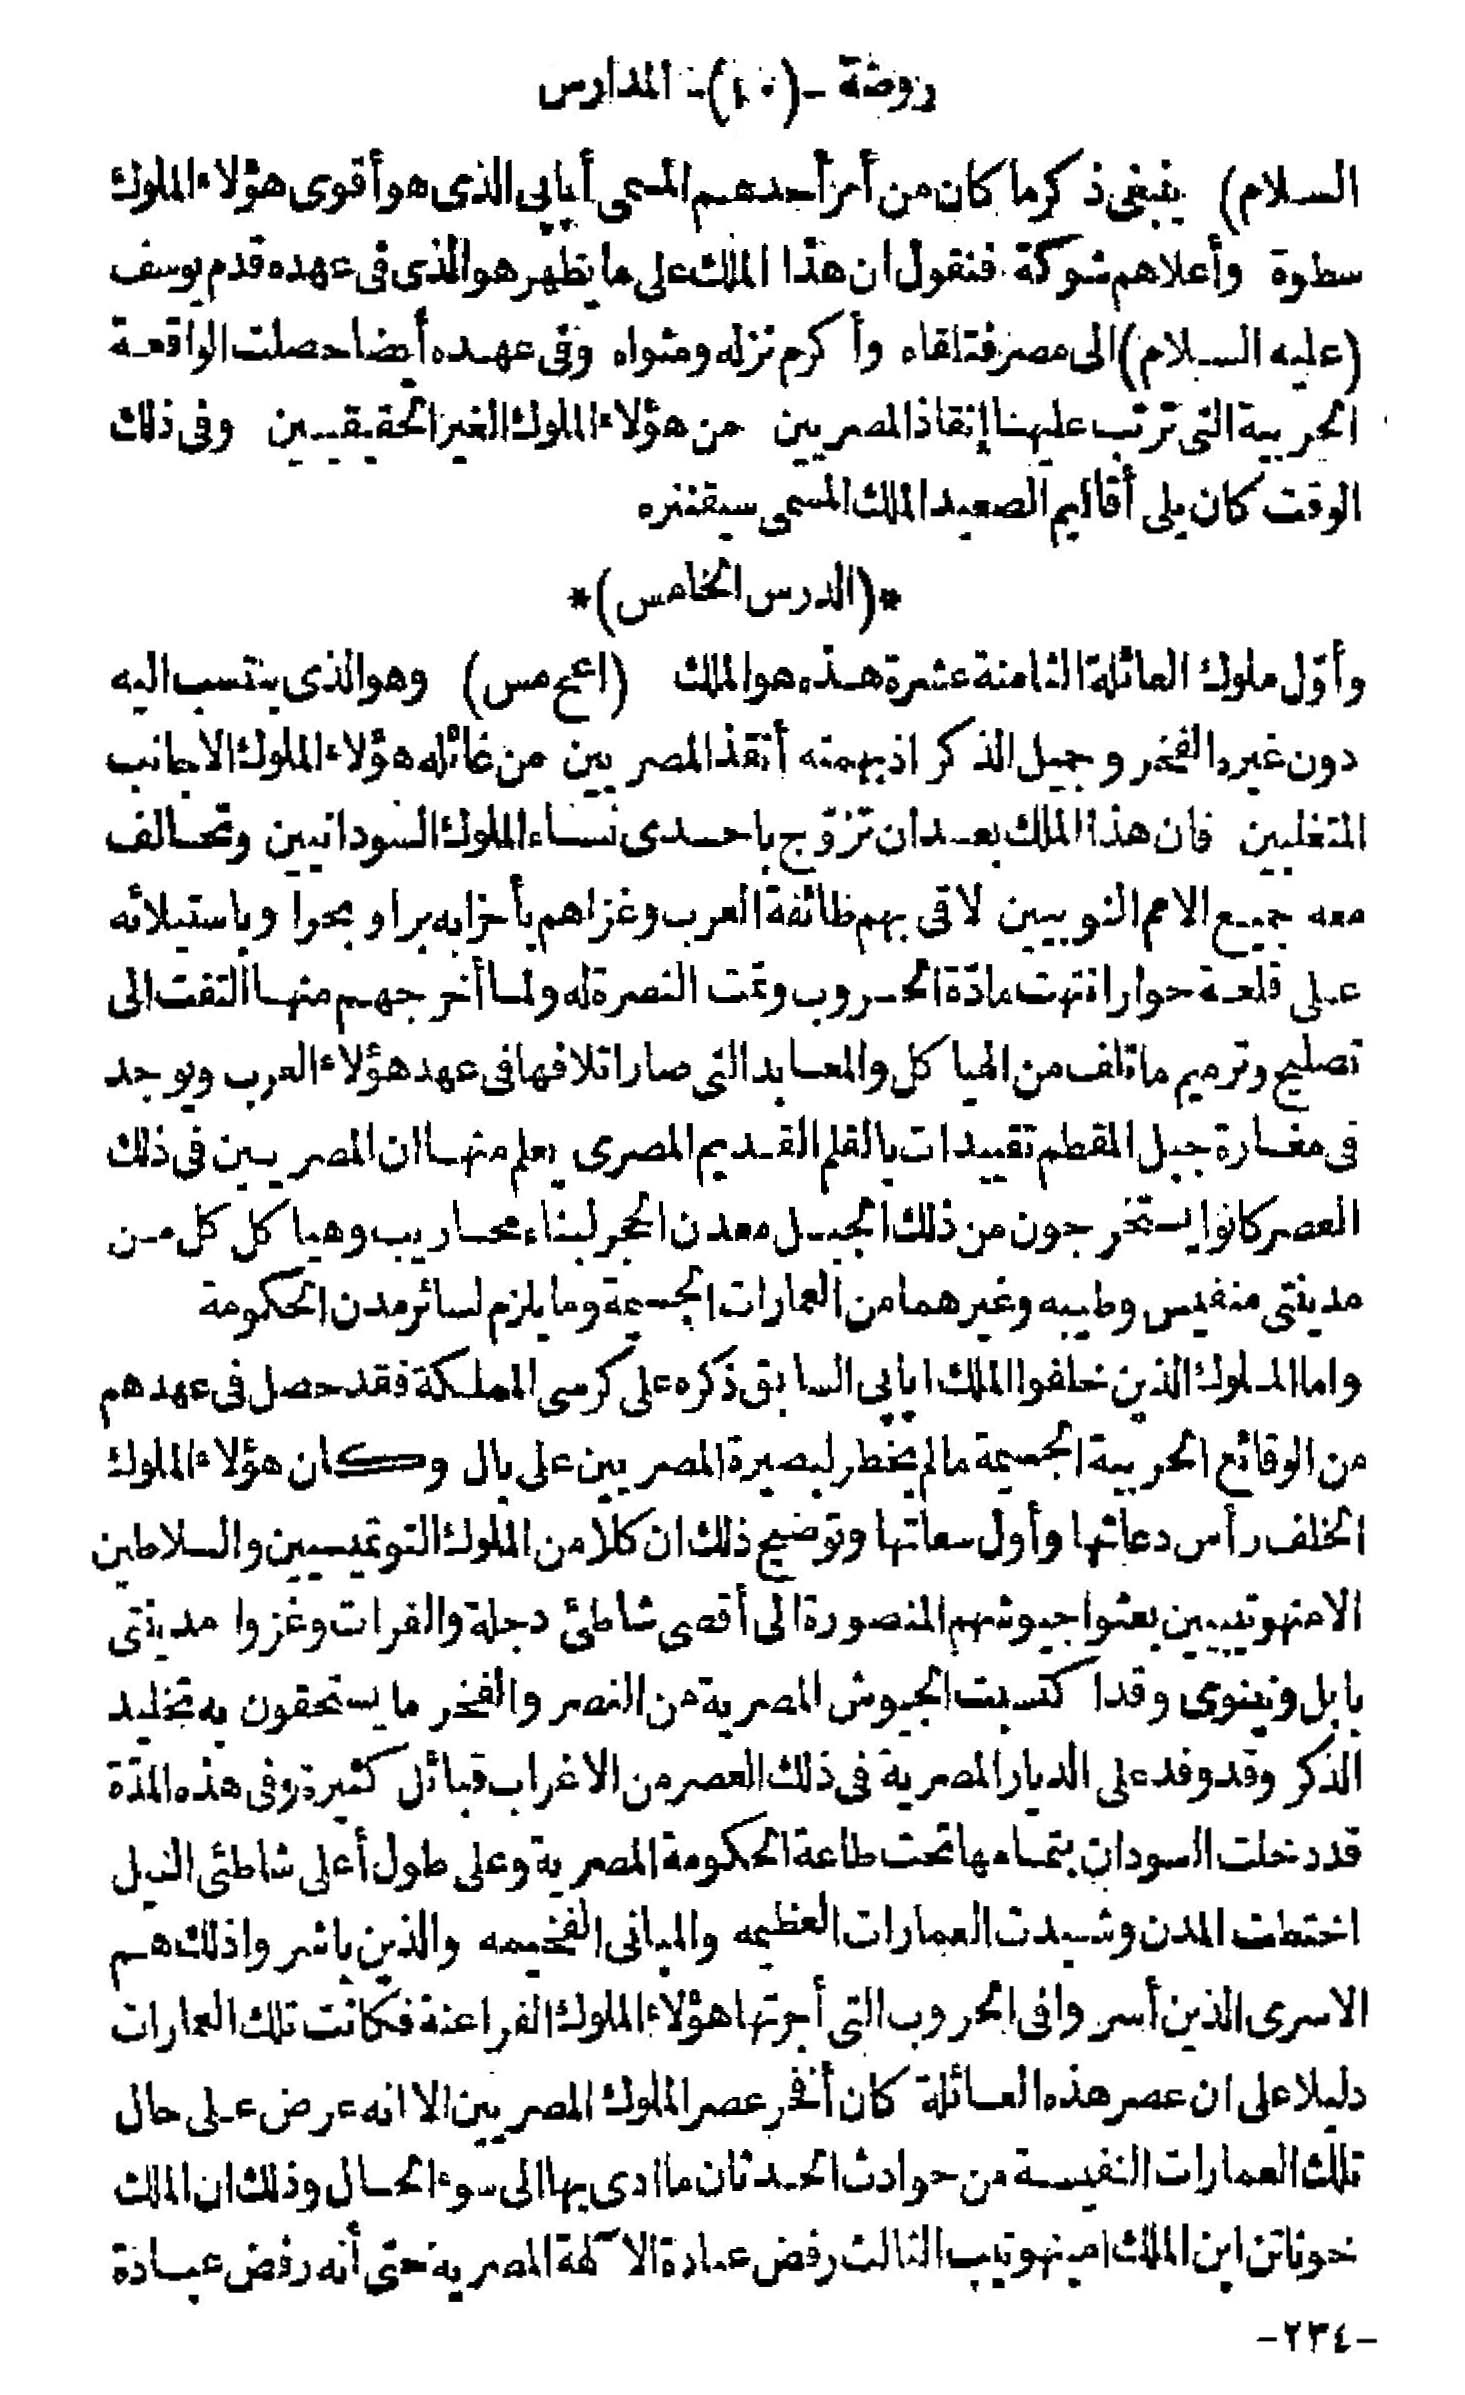 روضة -(١٠)- المدارس
السلام) ينبغى ذكر ما كان من أمر أحدهم المسمى أپاپى الذى هو أقوى هؤلاء الملوك
سطوة وأعلاهم شوكة فنقول ان هذا الملك على ما يظهر هو الذى فى عهده قدم يوسف
(عليه السلام) الى مصر فتلقاه وأكرم نزله ومثواه وفى عهده أيضا حصلت الواقعة
الحربية التى ترتب عليها إنقاذ المصريين من هؤلاء الملوك الغير الحقيقيين وفى ذلك
الوقت كان يلى أقاليم الصعيد الملك المسمى سيقننره
*(الدرس الخامس)*
وأوّل ملوك العائلة الثامنة عشرة هذه هو الملك (اعح مس) وهو الذى ينتسب اليه
دون غيره الفخر وجميل الذكر اذ بهمته أنقذ المصريين من غائله هؤلاء الملوك الاجانب
المتغلبين فان هذا الملك بعد ان تزوّج باحدى نساء الملوك السودانيين وتحالف
معه جميع الامم النوبيين لاقى بهم طائفة العرب وغزاهم بأحزابه برا وبحرا وباستيلائه
على قلعة حوار انتهت مادّة الحروب وتمت النصرة له ولما أخرجهم منها التفت الى
تصليح وترميم ما تلف من الهياكل والمعابد التى صار اتلافها فى عهد هؤلاء العرب ويوجد
فى مغارة جبل المقطم تقييدات بالقلم القديم المصرى يعلم منها ان المصريين فى ذلك
العصر كانوا يستخرجون من ذلك الجبل معدن الحجر لبناء محاريب وهياكل كل من
مدينتى منفيس وطيبه وغيرهما من العمارات الجسيمة وما يلزم لسائر مدن الحكومة
واما الملوك الذين خلفوا الملك اپاپى السابق ذكره على كرسى المملكة فقد حصل فى عهدهم
من الوقائع الحربية الجسيمة ما لم يخطر لبصيرة المصريين على بال وكان هؤلاء الملوك
الخلف رأس دعاتها وأول سعاتها وتوضيح ذلك ان كلا من الملوك التوتميسيين والسلاطين
الامنهوتيبيين بعثوا جيوشهم المنصورة الى أقصى شاطئ دجلة والفرات وغزوا مدينتى
بابل ونينوى وقد اكتسبت الجيوش المصرية من النصر والفخر ما يستحقون به تخليد
الذكر وقد وفد على الديار المصرية فى ذلك العصر من الاغراب قبائل كثيرة وفى هذه المدّة
قد دخلت السودان بتمامها تحت طاعة الحكومة المصرية وعلى طول أعلى شاطئى النيل
اختطت المدن وشيدت العمارات العظيمه والمبانى الفخيمه والذين باشروا ذلك هم
الاسرى الذين أسروا فى الحروب التى أجرتها هؤلاء الملوك الفراعنة فكانت تلك العمارات
دليلا على ان عصر هذه العائلة كان أفخر عصر الملوك المصريين الا انه عرض على حال
تلك العمارات النفيسة من حوادث الحدثان ما ادى بها الى سوء الحال وذلك ان الملك
خوناتن ابن الملك امينهوتيب الثالث رفض عبادة الآلهة المصرية حتى أنه رفض عبادة
-٢٣٤-